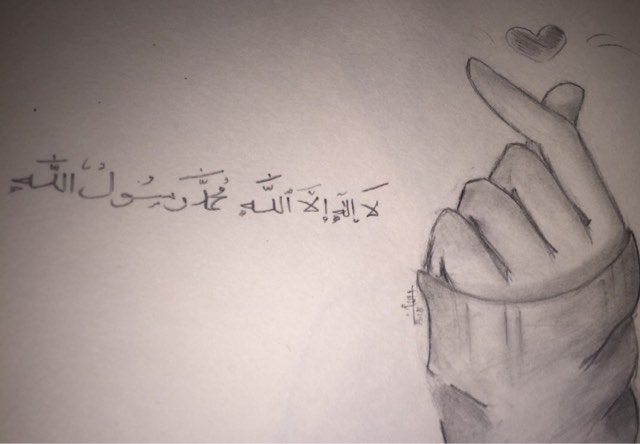 لَا إِلَهِ إِلَّا ٱللَّهِ مُحَمَّدْ رَسُولُ اللَّهِ